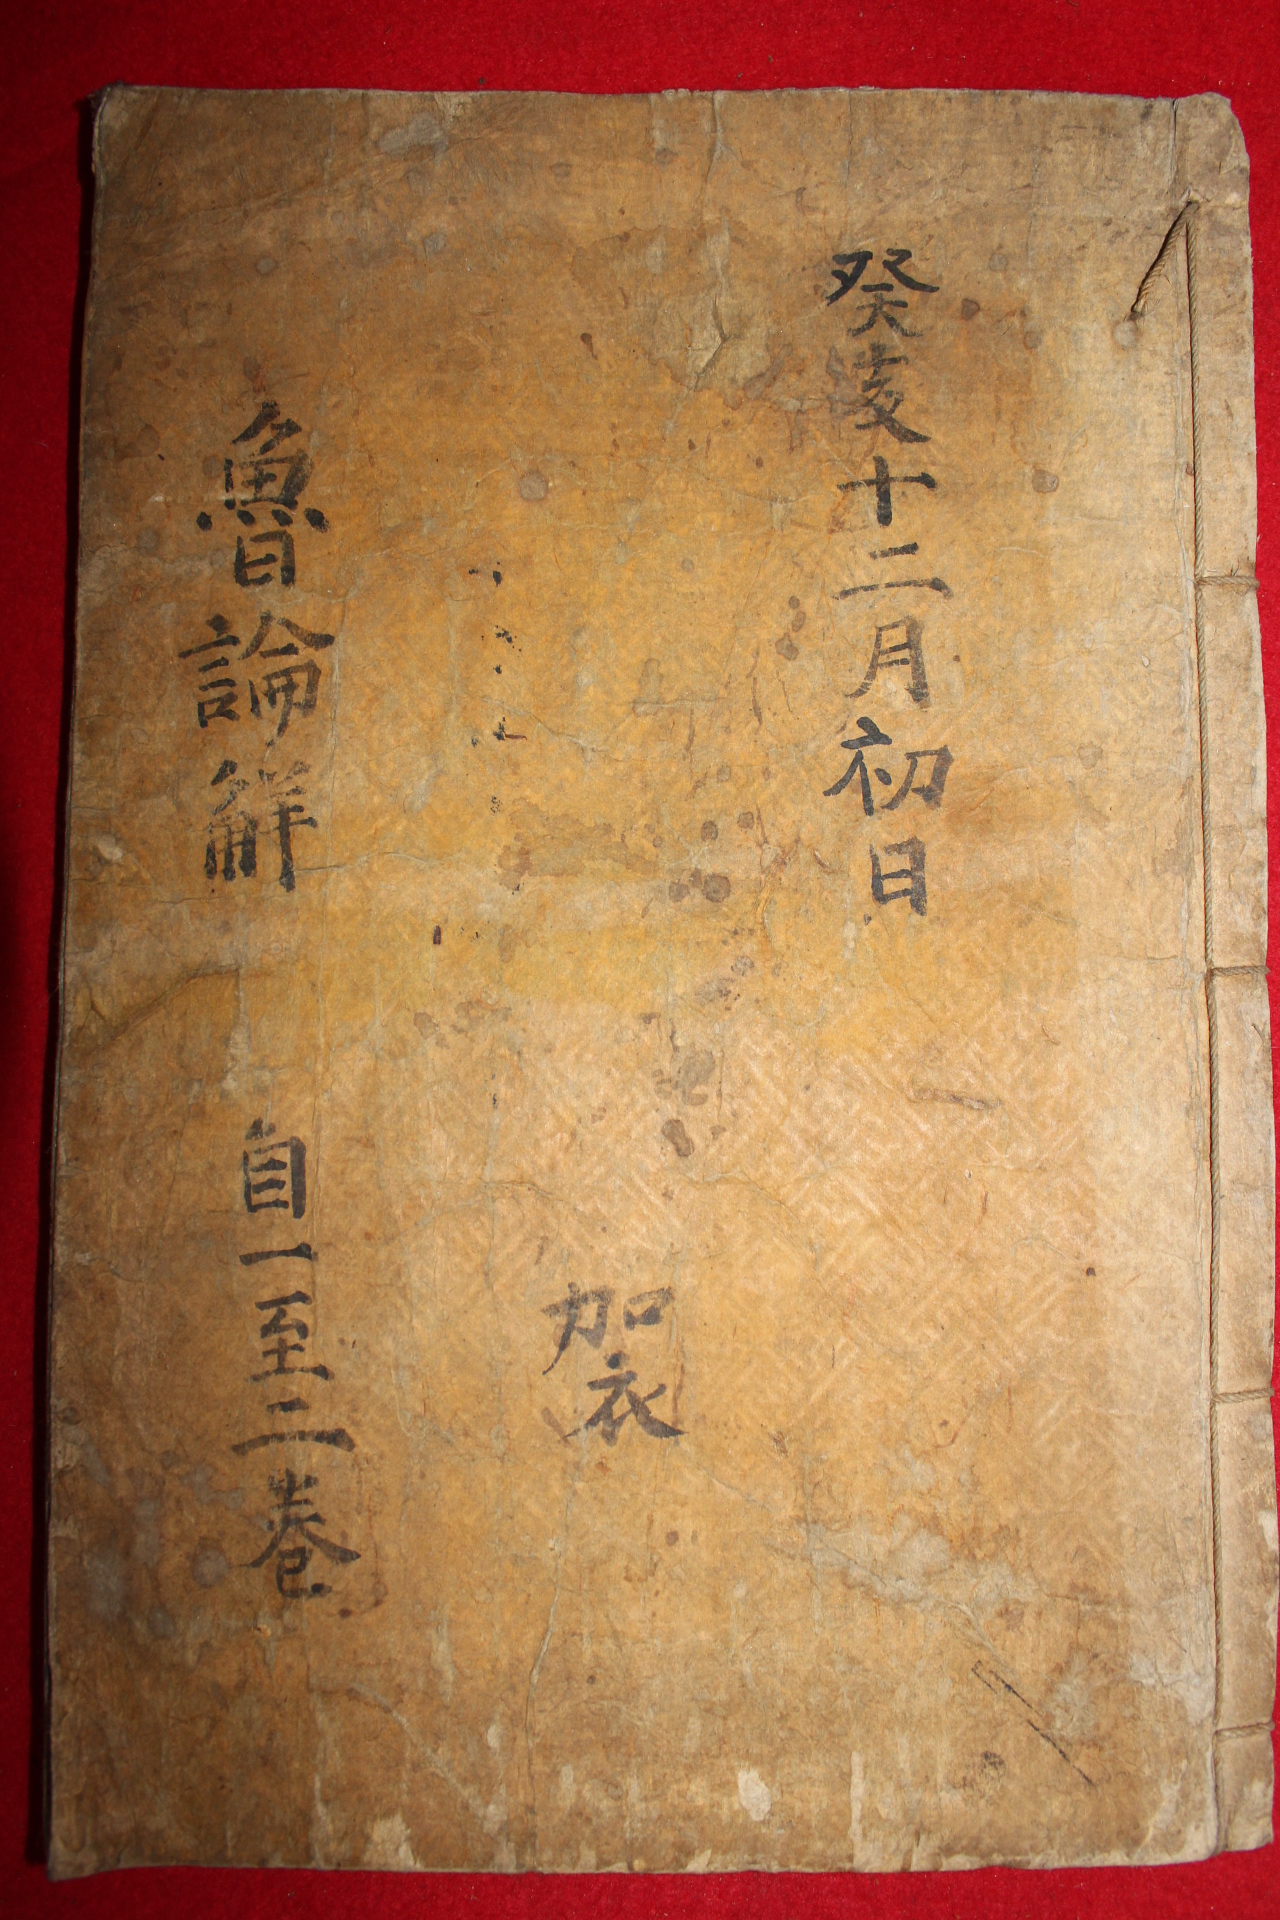 癸十二月初日
加衣
魯論觧 自一至二卷